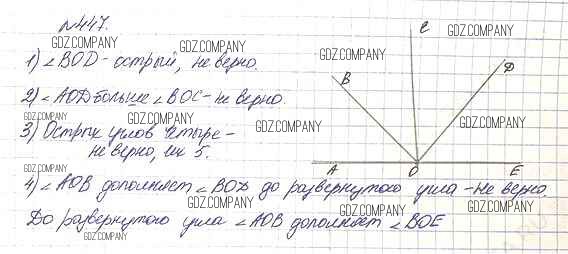 №447.
GDZ.COMPANY GDZ.COMPANY
1) ∠BOD - острый, не верно.
2) ∠AOD больше ∠BOC - не верно.
GDZ.COMPANY GDZ.COMPANY
3) Острых углов четыре -
не верно, их 5.
GDZ.COMPANY
4) ∠AOB дополняет ∠BOD до развернутого угла - не верно.
GDZ.COMPANY GDZ.COMPANY GDZ.COMPANY
До развернутого угла ∠AOB дополняет ∠BOE
GDZ.COMPANY
C
GDZ.COMPANY GDZ.COMPANY
B D
GDZ.COMPANY GDZ.COMPANY
A O E